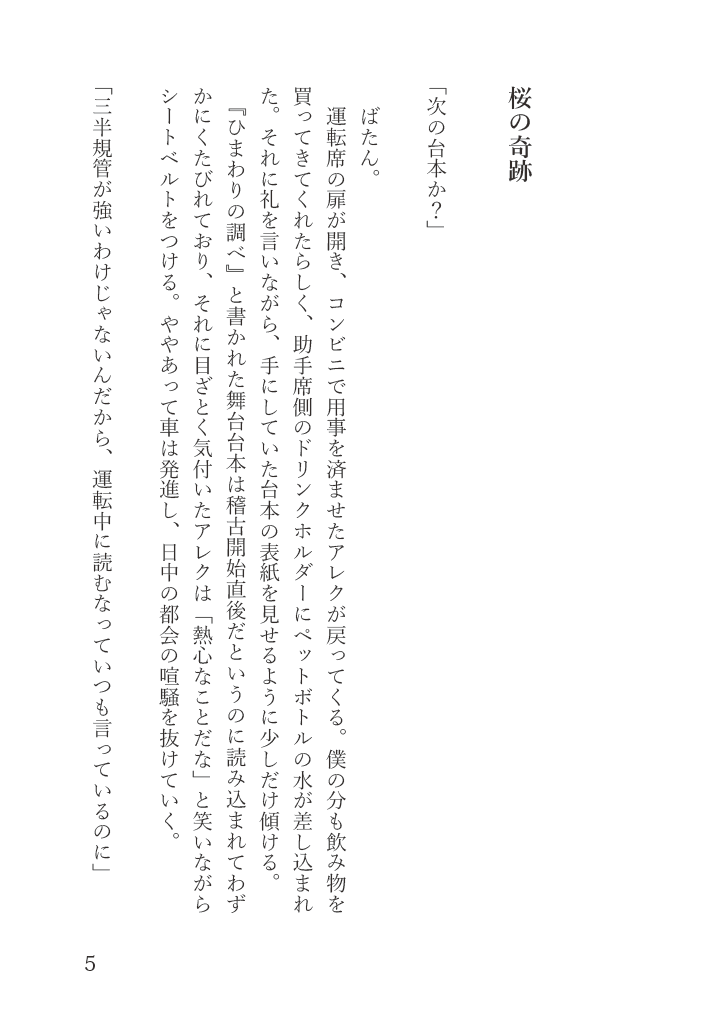 桜の奇跡
「次の台本か？」
ばたん。
運転席の扉が開き、コンビニで用事を済ませたアレクが戻ってくる。僕の分も飲み物を
買ってきてくれたらしく、助手席側のドリンクホルダーにペットボトルの水が差し込まれ
た。それに礼を言いながら、手にしていた台本の表紙を見せるように少しだけ傾ける。
『ひまわりの調べ』と書かれた舞台台本は稽古開始直後だというのに読み込まれてわず
かにくたびれており、それに目ざとく気付いたアレクは「熱心なことだな」と笑いながら
シートベルトをつける。ややあって車は発進し、日中の都会の喧騒を抜けていく。
「三半規管が強いわけじゃないんだから、運転中に読むなっていつも言っているのに」
5